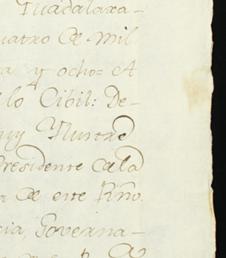 Guadalaxa-
uatro de mil
a y ocho= A
lo Cibil: De-
uy Yllustre
Presidente de la
a de este Rño.
cia, Governa-